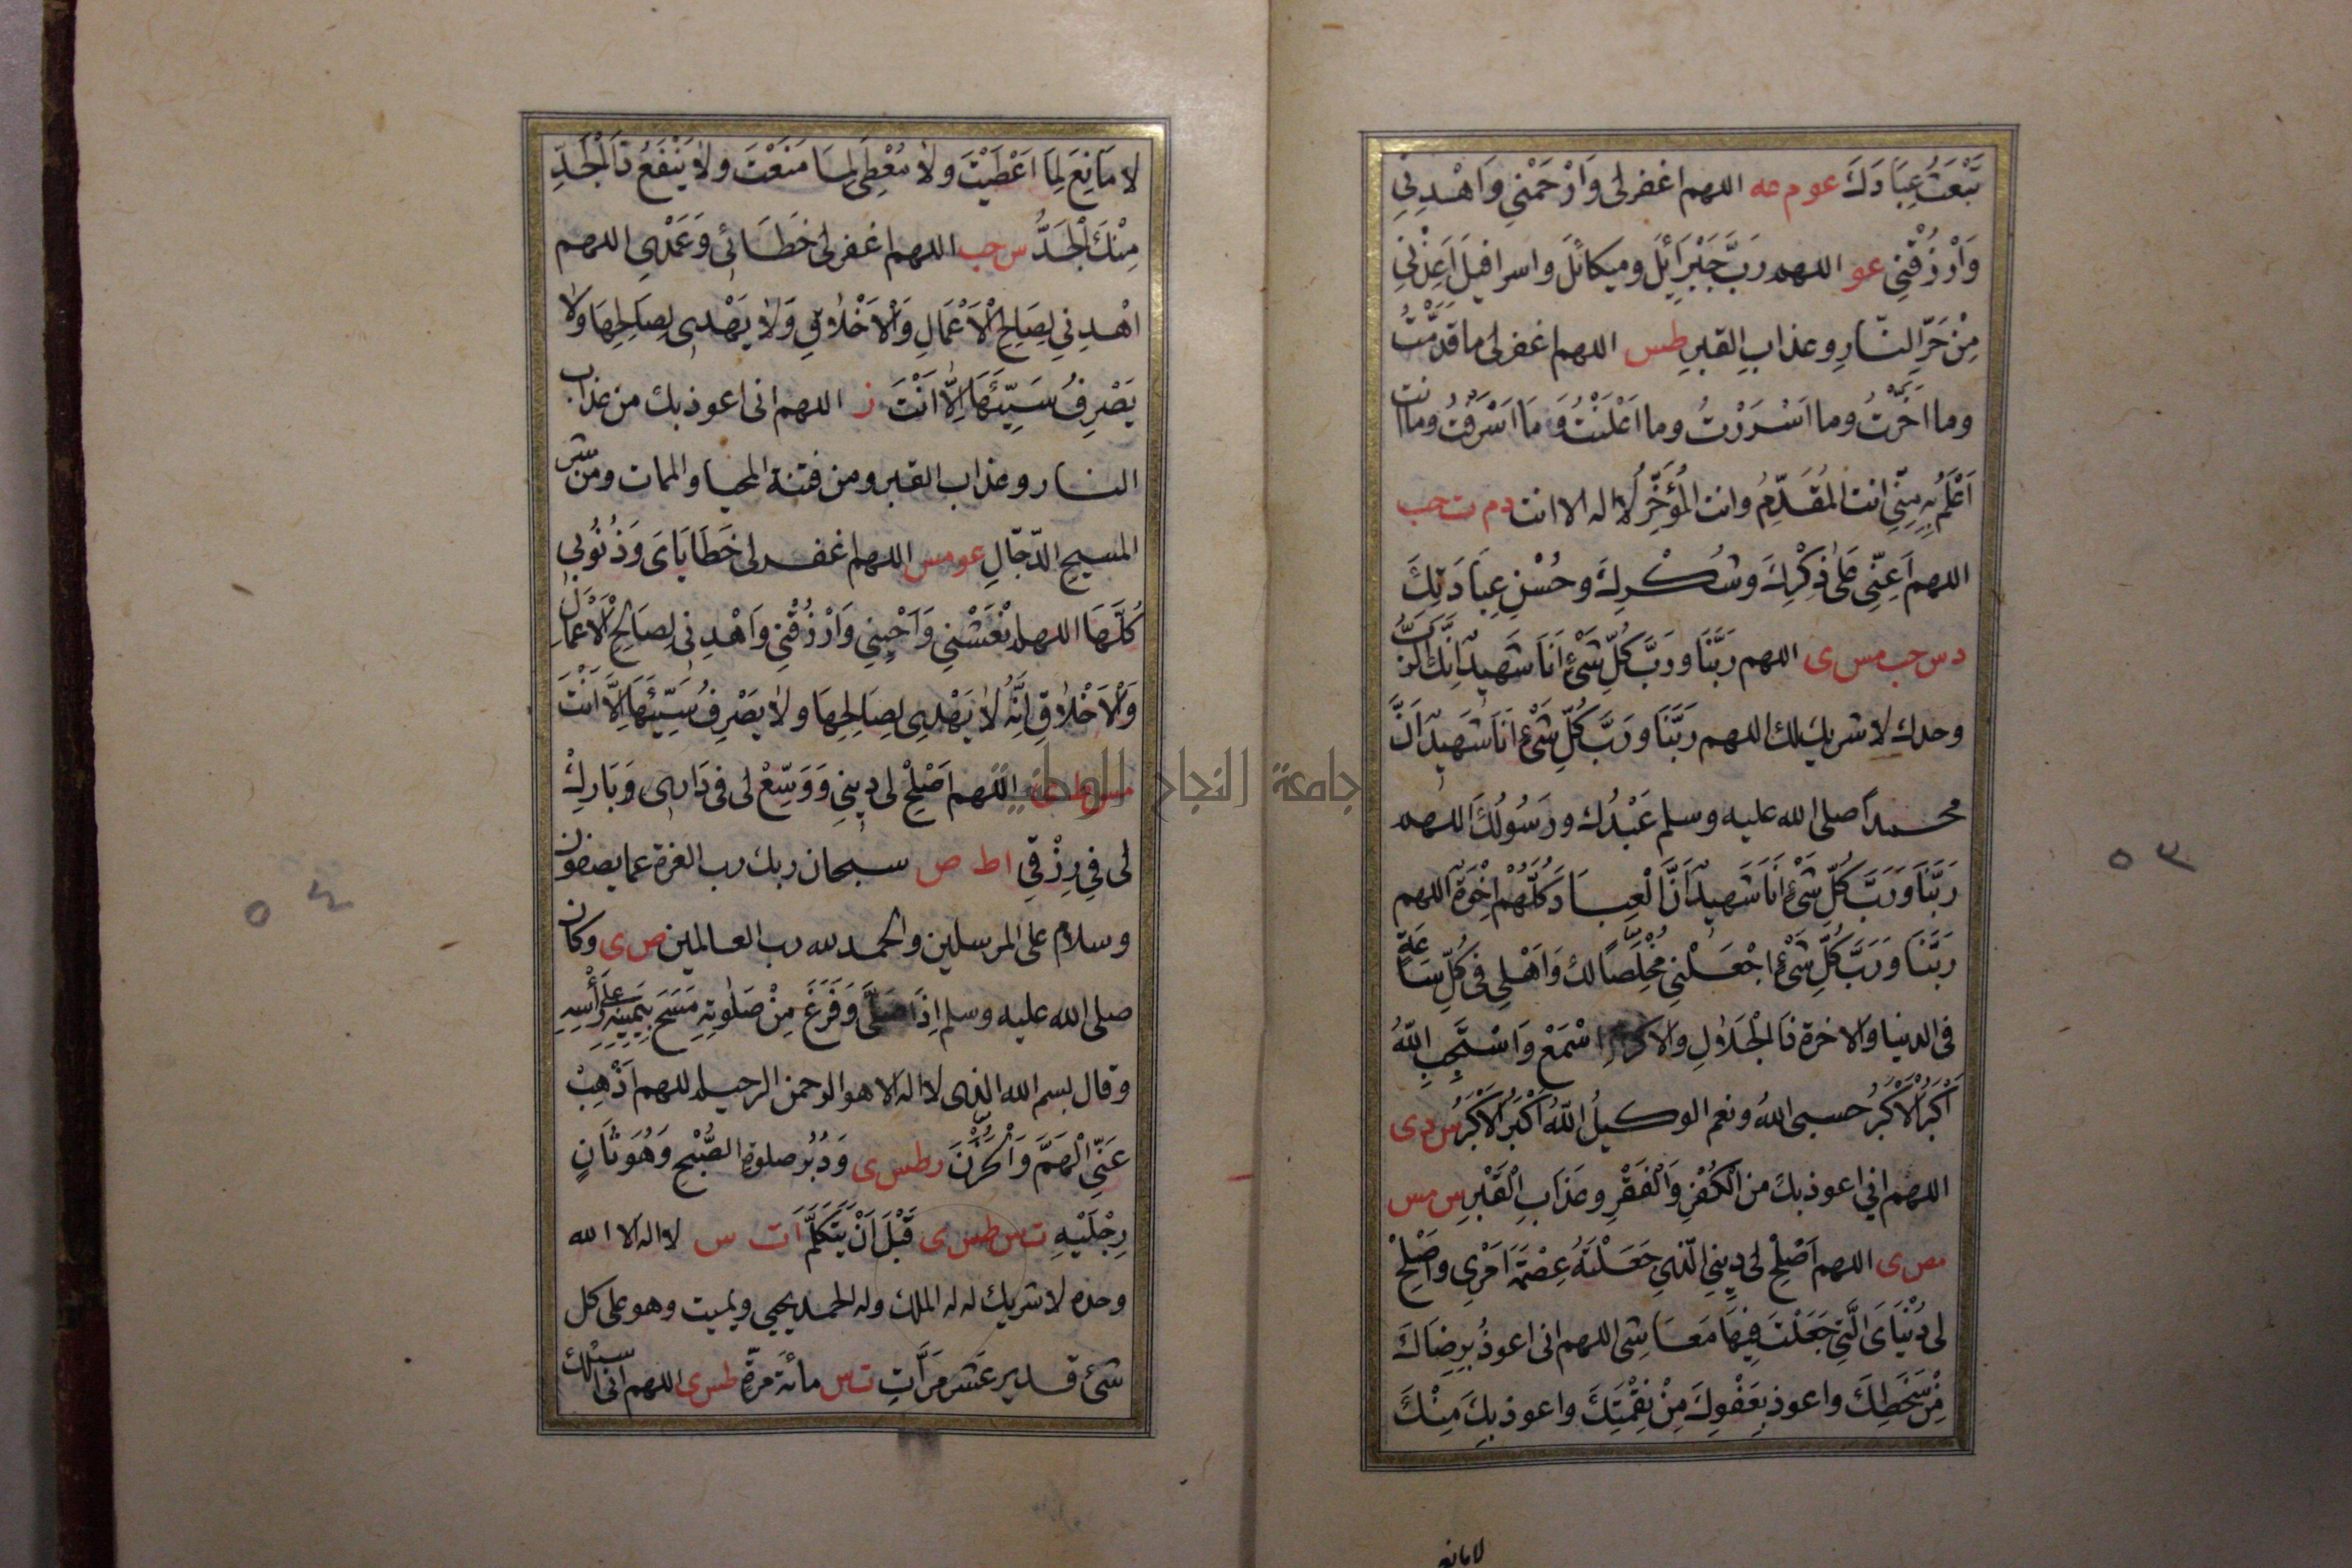 تَبْعَثُ عِبَادَكَ عو م عه اللهم اغفر لى وَارْحَمْنِي وَاهْدِنِي
وَارْزُقْنِي عو اللهم رَبَّ جَبْرَائِلَ وميكائلَ واسرافيلَ اَعِذْنِي
مِنْ حَرِّ النّارِ وعذابِ القبرِ طس اللهم اغفر لى ما قَدَّمْتُ
وما اَخَّرْتُ وما اَسْرَرْتُ وما اَعْلَنْتُ وَمَا اَسْرَفْتُ وما انت
اَعْلَمُ بِهِ مِنِّي انت المُقَدِّمُ وانت المُؤَخِّرُ لا اله الا انت د م ت حب
اللهم اَعِنِّي عَلَى ذِكْرِكَ وشُكْرِكَ وحُسْنِ عِبَادَتِكَ
د س حب مس ى اللهم رَبَّنَا ورَبَّ كُلِّ شَيْءٍ اَنَا شَهِيدٌ اِنَّكَ الرَّبُّ
وحدك لا شريك لك اللهم رَبَّنَا ورَبَّ كُلِّ شَيْءٍ اَنَا شَهِيدٌ اَنَّ
محمداً صلى الله عليه وسلم عَبْدُك ورَسُولُكَ اللهم
رَبَّنَا وَرَبَّ كُلِّ شَيْءٍ اَنَا شَهِيدٌ اَنَّ الْعِبَادَ كُلَّهُمْ اِخْوَةٌ اللهم
رَبَّنَا وَرَبَّ كُلِّ شَيْءٍ اجْعَلْنِي مُخْلِصًا لك وَاَهْلِي فِي كُلِّ سَاعَةٍ
فى الدنيا والاخرة ذَا الْجَلالِ والاكرام اسْمَعْ وَاسْتَجِبِ اللّهُ
اَكْبَرُ الْاَكْبَرُ حسبى اللهُ ونعم الوكيلُ اللّهُ اَكْبَرُ الْاَكْبَرُ س د ى
اللهم اني اعوذ بك من الْكُفْرِ وَالْفَقْرِ وعَذَابِ الْقَبْرِ س مس
مص ى اللهم اَصْلِحْ لى دِينِي الَّذِي جَعَلْتَهُ عِصْمَةَ اَمْرِي واَصْلِحْ
لى دُنْيَاىَ الَّتِي جَعَلْتَ فِيهَا مَعَاشِى اللهم انى اعوذُ بِرِضَاكَ
مِنْ سَخَطِكَ واعوذ بِعَفْوِكَ مِنْ نِقْمَتِكَ واعوذ بِكَ مِنْكَ
لا مانع
٥٣
لا مَانِعَ لِمَا اَعْطَيْتَ ولا مُعْطِىَ لِمَا مَنَعْتَ ولا يَنْفَعُ ذَا الْجَدِّ
مِنْكَ الْجَدُّ س حب اللهم اغفر لى خَطَائِى وَعَمْدِي اللهم
اهْدِنِي لِصَالِحِ الْاَعْمَالِ وَالْاَخْلاقِ وَلا يَهْدِى لِصَالِحِهَا وَلا
يَصْرِفُ سَيِّئَهَا اِلَّا اَنْتَ ز اللهم انى اعوذ بك من عذاب
النار وعذاب القبر ومن فتنة المحيا والممات ومن شر
المسيحِ الدّجّالِ عو مس اللهم اغفر لى خَطَايَاىَ وَذُنُوبِي
كُلَّهَا اللهم انْعَشْنِي وَاَحْيِنِي وَارْزُقْنِي وَاهْدِنِى لِصَالِحِ الْاَعْمَالِ
وَالْاَخْلاقِ اِنَّهُ لا يَهْدِي لِصَالِحِهَا ولا يَصْرِفُ سَيِّئَهَا اِلَّا اَنْتَ
مس ط ى اللهم اَصْلِحْ لى دِينِي وَوَسِّعْ لى فى دَارِى وَبَارِكْ
لى فِي رِزْقِي ا ط ص سبحان ربك رب العزة عما يصفون
وسلام على المرسلين والحمد لله رب العالمين ص ى وكان
صلى الله عليه وسلم اِذَا صَلَّى وَفَرَغَ مِنْ صَلوتِهِ مَسَحَ بِيَمِينِهِ عَلَى رَأْسِهِ
وقال بسم الله الذى لا اله الا هو الرحمن الرحيم اللهم اَذْهِبْ
عَنِّى الْهَمَّ وَالْحُزْنَ ر طس ى وَدُبُرِ صلوةِ الصُّبْحِ وَهُوَ ثَانٍ
رِجْلَيْهِ ت س طس ى قَبْلَ اَنْ يَتَكَلَّمَ ا ت س لا اله الا الله
وحده لا شريك له له الملك وله الحمد يحيي ويميت وهو على كل
شئ قدير عَشْرَ مَرَّاتٍ ت س مائةَ مَرَّةٍ طس ى اللهم انى اسئلك
٥٤
جامعة النجاح الوطنية